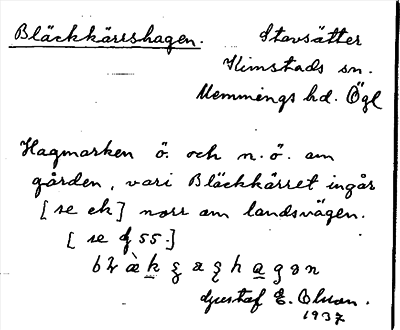 Bläckkärrshagen. Stavsätter
Kimstads sn.
Memmings hd. Ögl
Hagmarken ö. och n.ö. om
gården, vari Bläckkärret ingår
[se ek] norr om landsvägen.
[se f 55.]
Gustaf E. Olson.
1937